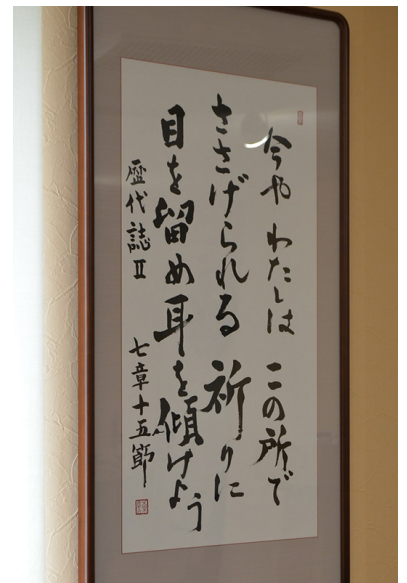 今や わたしは この所で
ささげられる 祈りに
目を留め耳を傾けよう
歴代誌Ⅱ 七章十五節